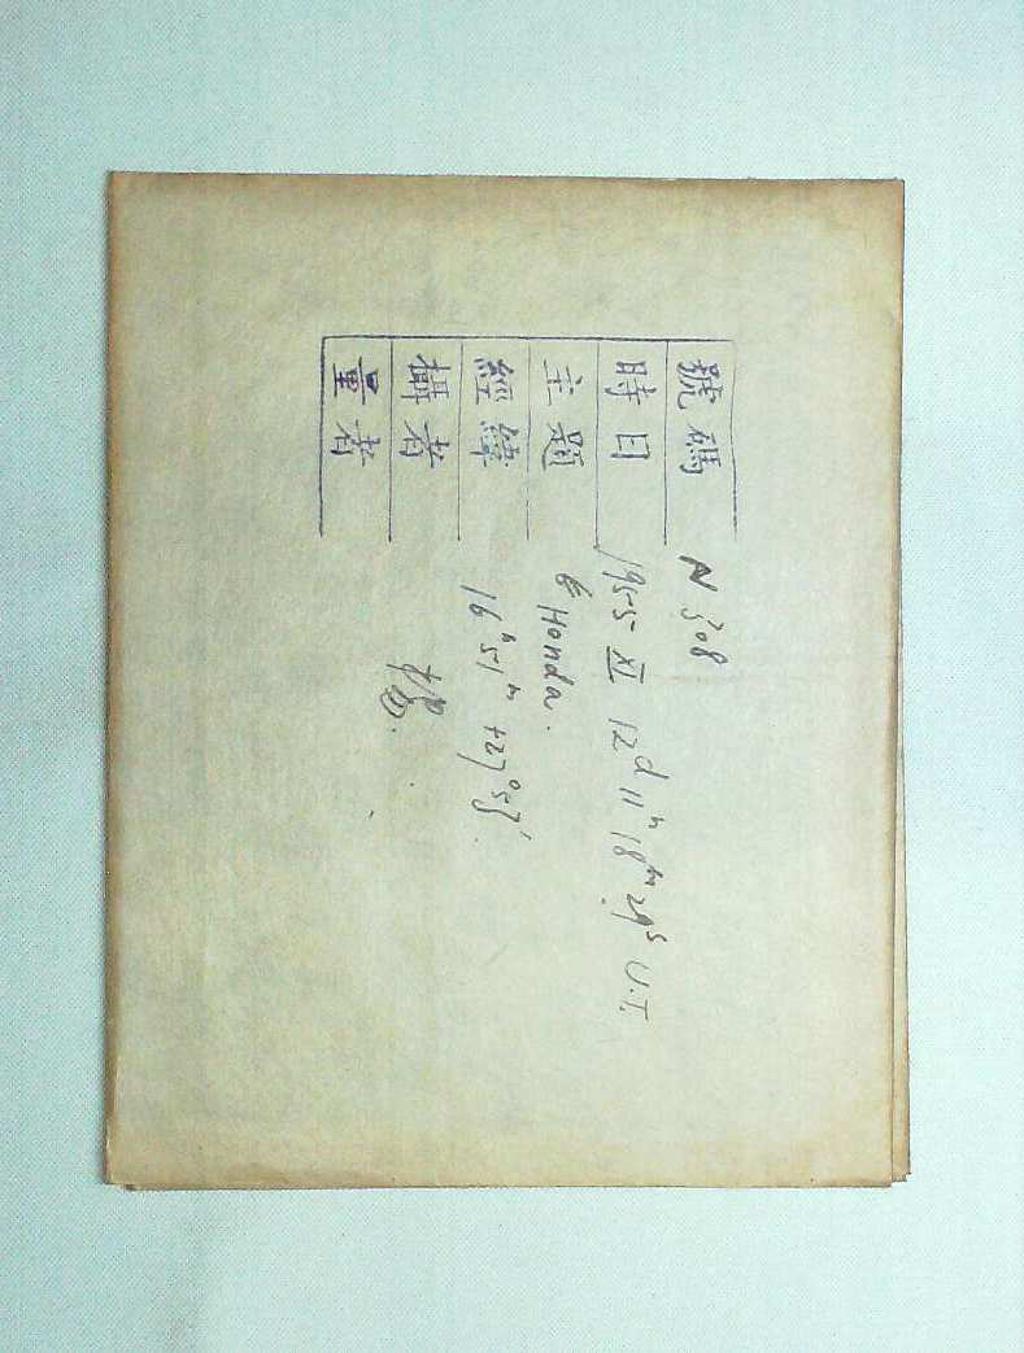 號碼 N 308
時日 1955 XI 12d 11h 18m 29s U.T.
主題 Honda.
經緯 16h51m +27°
攝者
量者